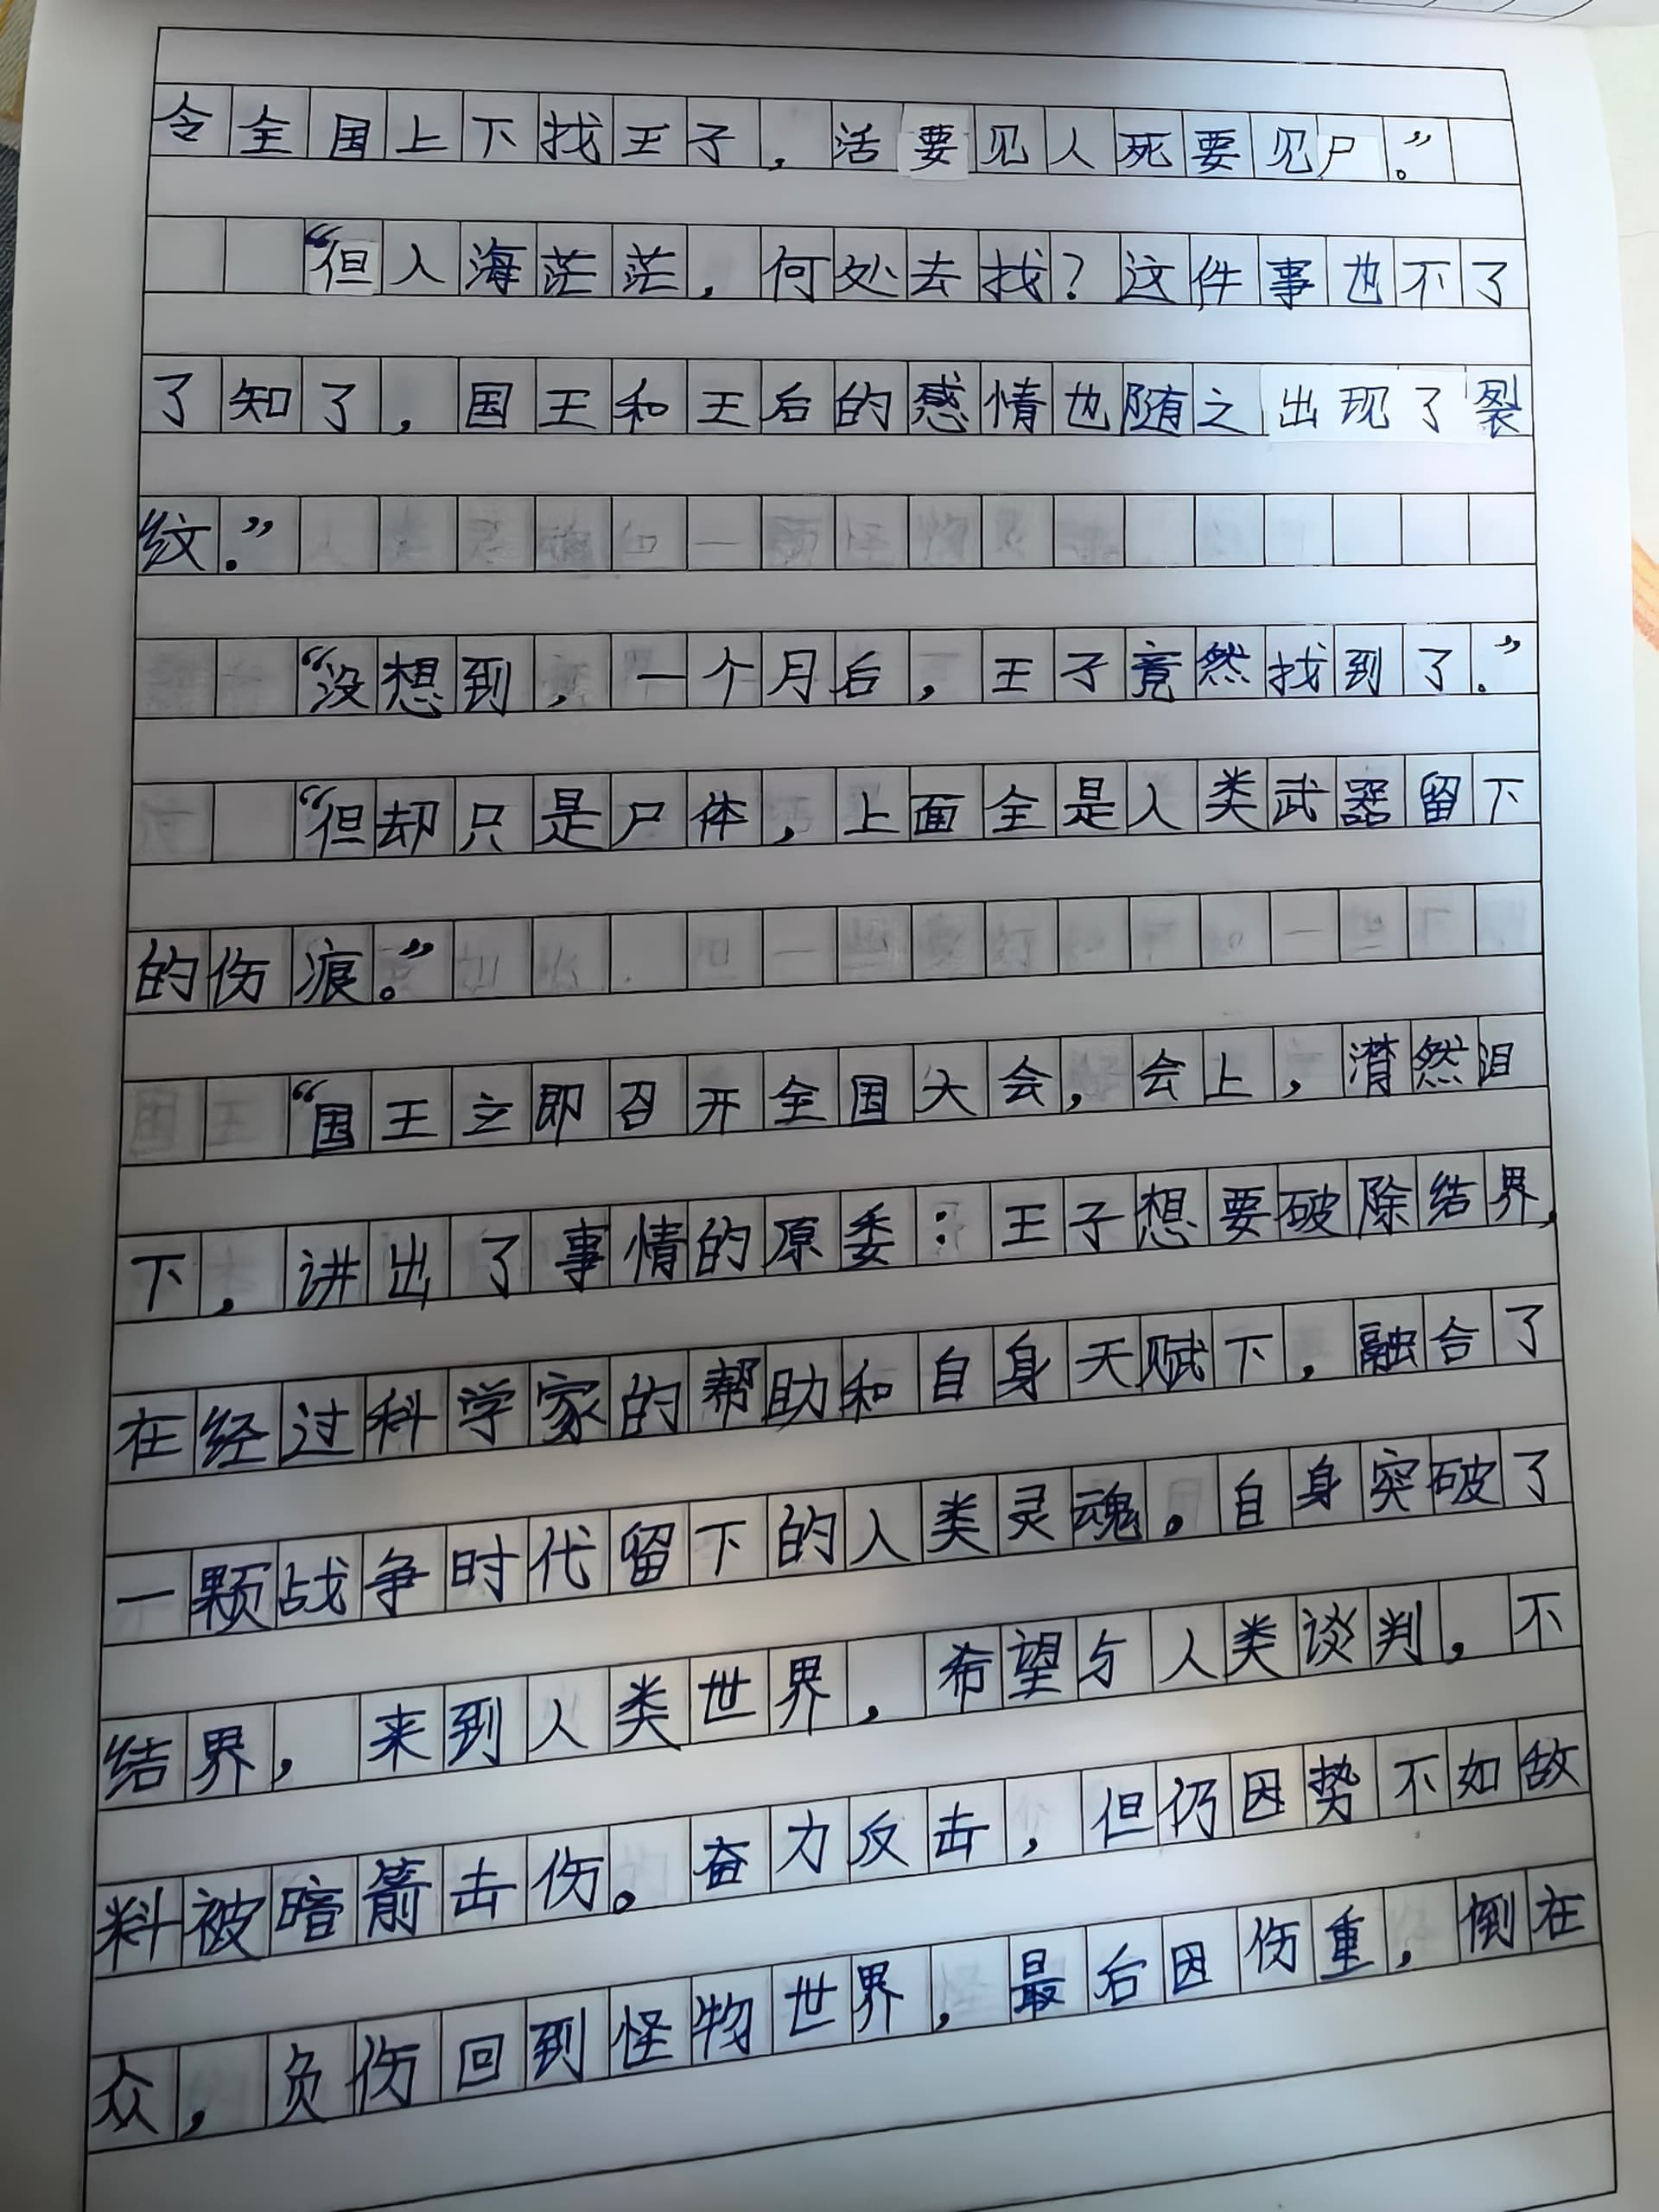 令全国上下找王子，活要见人死要见尸。”
“但人海茫茫，何处去找？这件事也不了
了知了，国王和王后的感情也随之出现了裂
纹.”
“没想到，一个月后，王子竟然找到了.”
“但却只是尸体，上面全是人类武器留下
的伤痕。”
“国王立即召开全国大会，会上，潸然泪
下，讲出了事情的原委：王子想要破除结界，
在经过科学家的帮助和自身天赋下，融合了
一颗战争时代留下的人类灵魂。自身突破了
结界，来到人类世界，希望与人类谈判，不
料被暗箭击伤。奋力反击，但仍因势不如敌
众，负伤回到怪物世界，最后因伤重，倒在